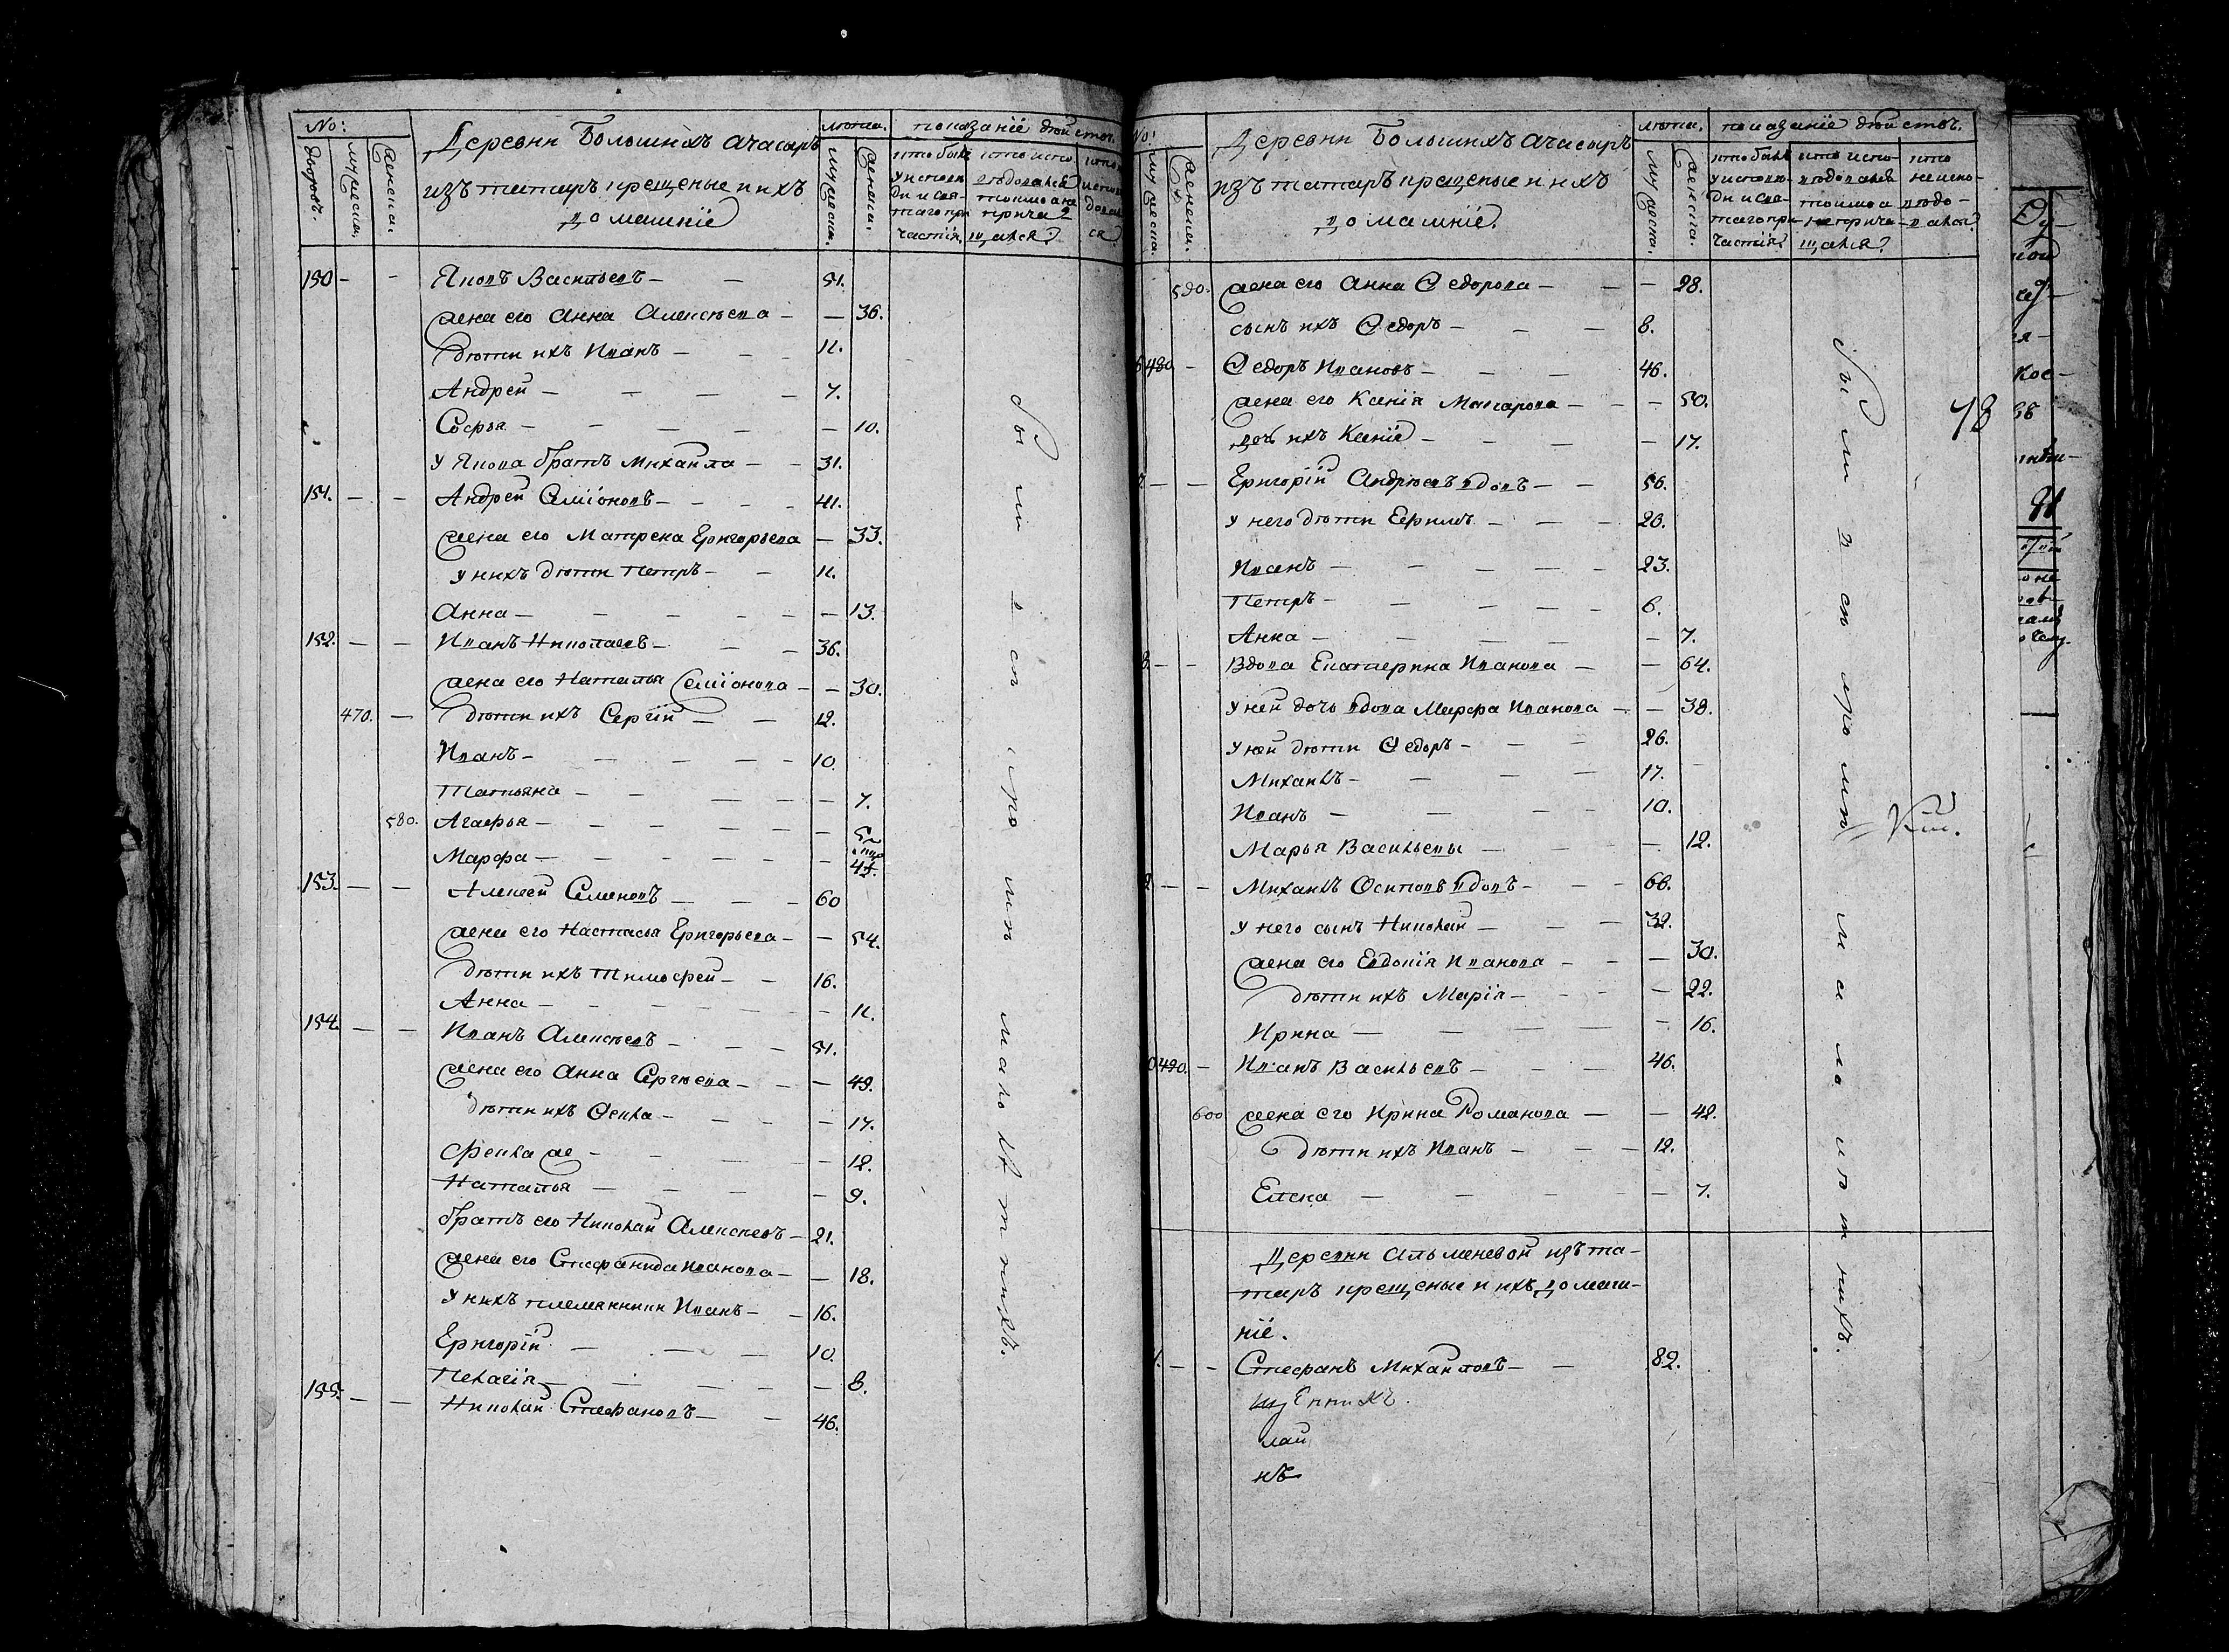 No:
дворовъ.
мужеска.
женска.
Деревни Большихъ Ачасыръ
изъ татаръ крещеные и ихъ
домашніе
лѣта.
мужеска.
женска.
показаніе дѣйствъ.
кто былъ
у исповѣ-
ди и свя-
таго при-
частія.
кто испо-
вѣдовался
токмо а не
прича-
щался?
150 - - Яковъ Васильевъ - - 51.
жена его Анна Алексѣева - - 36.
дѣти ихъ Иванъ - - - 11.
Андрей - - - - 7.
Софья - - - - - 10.
у Якова братъ Михаила - - 31.
151. - - Андрей Семіоновъ - - - 41.
жена его Матрена Григорьева - 33.
у нихъ дѣти Петръ - - 11.
Анна - - - - - 13.
152. - - Иванъ Николаевъ - - - 36.
жена его Наталья Семіонова - - 30.
470. - дѣти ихъ Сергій - - 12.
Иванъ - - - - - 10.
Татьяна - - - - - 7.
580. Агафья - - - - - - 5
Марфа - - - - - - 4
153. - - Алексей Семеновъ - - - 60
жена его Настасья Григорьева - - 54.
дѣти ихъ Тимофей - - 16.
Анна - - - - - - 11.
154. - - Иванъ Алексѣевъ - - - 51.
жена его Анна Сергѣева - - - 49.
дѣти ихъ Фекла - - - - 17.
Фекла же - - - - - 12.
Наталья - - - - 9.
братъ его Николай Алексѣевъ - 21.
жена его Стефанида Иванова - - 18.
у нихъ племянники Иванъ - - 16.
Григорій - - - 10.
Пелагія - - - - - 8.
155. - - Николай Стефановъ - - 46.
No:
мужеска.
женска.
Деревни Большихъ Ачасыръ
изъ татаръ крещеные и ихъ
домашніе.
лѣта.
мужеска.
женска.
показаніе дѣйствъ.
кто былъ
у исповѣ-
ди и свя-
таго при-
частія?
кто испо-
вѣдовался
токмо а
не прича-
щался?
кто
не испо-
вѣдо-
вался?
590. жена его Анна Федорова - - - 28.
сынъ ихъ Федоръ - - - 8.
480. - Федоръ Ивановъ - - - 46.
жена его Ксенія Макарова - - - 50.
дочь ихъ Ксенія - - - - 17.
- - Григорій Андрѣевъ вдовъ - - 56.
у него дѣти Ефимъ - - - 26.
Иванъ - - - - - 23.
Петръ - - - - - 6.
Анна - - - - - 7.
- - Вдова Екатерина Иванова - - 64.
у ней дочь вдова Марфа Иванова - - 38.
у ней дѣти Федоръ - - - 26.
Михаилъ - - - - 17.
Иванъ - - - - 10.
Марья Васильевы - - - 12.
- - Михаилъ Осиповъ вдовъ - - - 66.
у него сынъ Николай - - - 32.
жена его Евдокія Иванова - - - 30.
дѣти ихъ Марія - - - - 22.
Ирина - - - - - 16.
490. - Иванъ Васильевъ - - - 46.
600 жена его Ирина Романова - - 42.
дѣти ихъ Иванъ - - - 12.
Елена - - - - - 7.
Деревни Альменевой изъ та-
таръ крещеные и ихъ домаш-
ніе.
- - Стефанъ Михайловъ - - 82.
лай
нъ
были
кромѣ малолѣтнихъ.
были
кромѣ малолѣтнихъ.
78